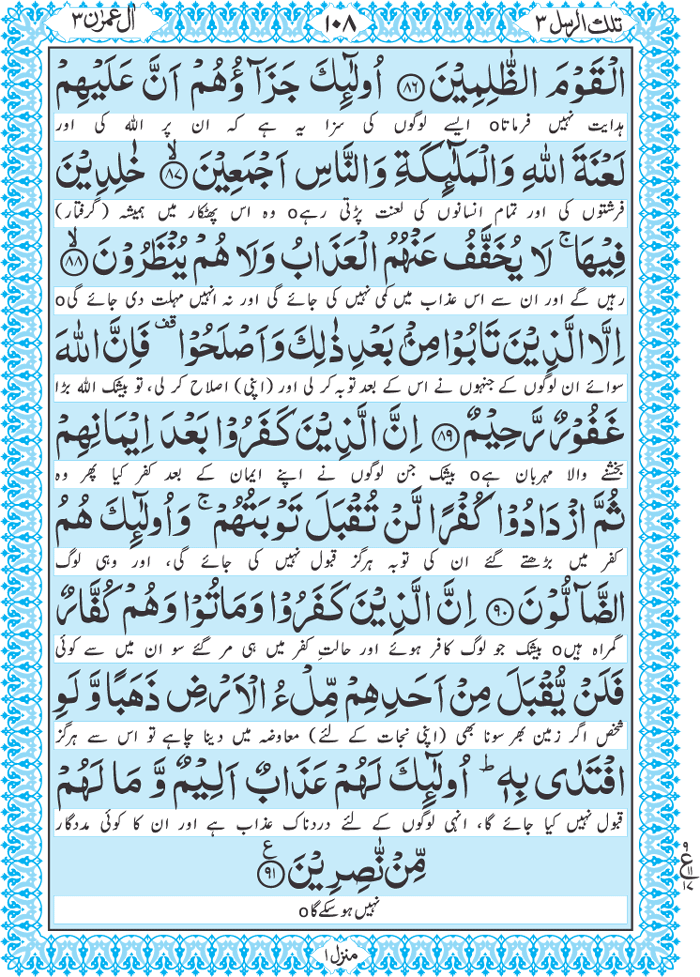 تلك الرسل ٣ ١٠٨ اٰل عمرٰن ٣
الْقَوْمَ الظّٰلِمِيْنَ ﴿۸۶﴾ اُولٰٓئِكَ جَزَآؤُهُمْ اَنَّ عَلَيْهِمْ
ہدایت نہیں فرماتاo ایسے لوگوں کی سزا یہ ہے کہ ان پر اللہ کی اور
لَعْنَةَ اللّٰهِ وَالْمَلٰٓئِكَةِ وَالنَّاسِ اَجْمَعِيْنَ ﴿۸۷﴾ۙ خٰلِدِيْنَ
فرشتوں کی اور تمام انسانوں کی لعنت پڑتی رہےo وہ اس پھٹکار میں ہمیشہ (گرفتار)
فِيْهَا ۚ لَا يُخَفَّفُ عَنْهُمُ الْعَذَابُ وَلَا هُمْ يُنْظَرُوْنَ ﴿۸۸﴾ۙ
رہیں گے اور ان سے اس عذاب میں کمی نہیں کی جائے گی اور نہ انہیں مہلت دی جائے گیo
اِلَّا الَّذِيْنَ تَابُوْا مِنْۢ بَعْدِ ذٰلِكَ وَاَصْلَحُوْا ۟قف فَاِنَّ اللّٰهَ
سوائے ان لوگوں کے جنہوں نے اس کے بعد توبہ کر لی اور (اپنی) اصلاح کر لی، تو بیشک اللہ بڑا
غَفُوْرٌ رَّحِيْمٌ ﴿۸۹﴾ اِنَّ الَّذِيْنَ كَفَرُوْا بَعْدَ اِيْمَانِهِمْ
بخشنے والا مہربان ہےo بیشک جن لوگوں نے اپنے ایمان کے بعد کفر کیا پھر وہ
ثُمَّ ازْدَادُوْا كُفْرًا لَّنْ تُقْبَلَ تَوْبَتُهُمْ ۚ وَاُولٰٓئِكَ هُمُ
کفر میں بڑھتے گئے ان کی توبہ ہرگز قبول نہیں کی جائے گی، اور وہی لوگ
الضَّآلُّوْنَ ﴿۹۰﴾ اِنَّ الَّذِيْنَ كَفَرُوْا وَمَاتُوْا وَهُمْ كُفَّارٌ
گمراہ ہیںo بیشک جو لوگ کافر ہوئے اور حالتِ کفر میں ہی مر گئے سو ان میں سے کوئی
فَلَنْ يُّقْبَلَ مِنْ اَحَدِهِمْ مِّلْءُ الْاَرْضِ ذَهَبًا وَّلَوِ
شخص اگر زمین بھر سونا بھی (اپنی نجات کے لئے) معاوضہ میں دینا چاہے تو اس سے ہرگز
افْتَدٰى بِهٖ ؕ اُولٰٓئِكَ لَهُمْ عَذَابٌ اَلِيْمٌ وَّ مَا لَهُمْ
قبول نہیں کیا جائے گا، انہی لوگوں کے لئے دردناک عذاب ہے اور ان کا کوئی مددگار
مِّنْ نّٰصِرِيْنَ ﴿۹۱﴾ع
نہیں ہو سکے گاo
منزل ۱